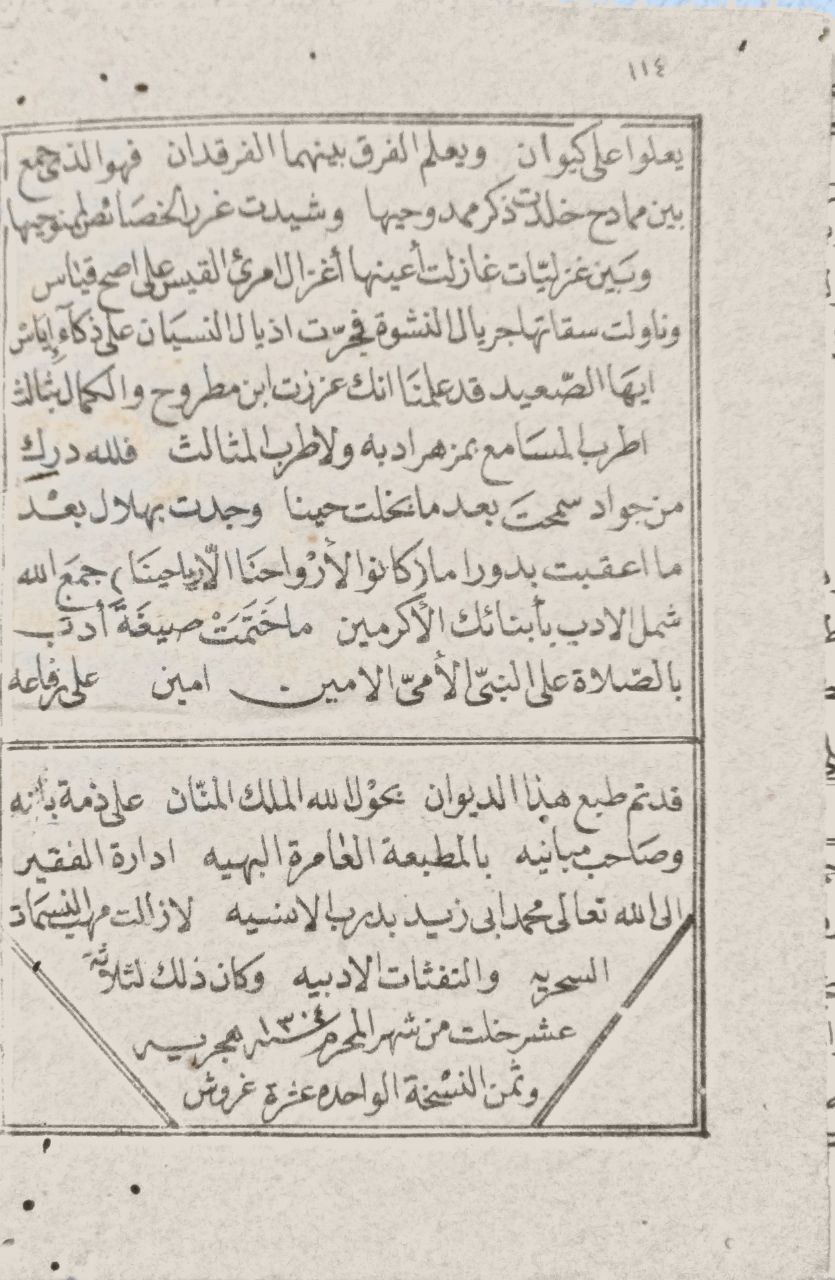 ١١٤
يعلوا على كيوان ويعلم الفرق بينهما الفرقدان فهو الذى جمع
بين ممادح خلدت ذكر ممدوحيها وشيدت غرر الخصائص لممنوحيها
وبين غزليات غازلت أعينها أغزال امرئ القيس على اصح قياس
وناولت سقاتها جريال النشوة فجرّت اذيال النسيان على ذكآء إياس
ايها الصّعيد قد علمنا انك عززت ابن مطروح والكمال بثالث
اطرب المسامع بمزهر ادبه ولا طرب المثالث فلله درك
من جواد سمحت بعد ما بخلت حينا وجدت بهلال بعْد
ما اعقبت بدورا ما كانوا لأرْواحنا الّا رياحينا جمَعَ الله
شمل الادب بأبنائك الأكرمين ما خَتَمَتْ صيغَةَ أدب
بالصّلاة على النبىّ الأمىّ الامين امين على رفاعه
قد تم طبع هذا الديوان بحوْل الله الملك المنّان على ذمة بانه
وصاحب مبانيه بالمطبعة العامرة البهيه ادارة الفقير
الى الله تعالى محمد ابى زيد بدرب الانسيه لا زالت مهب النسمات
السحريه والنفثات الادبيه وكان ذلك لثلاثة
عشر خلت من شهر المحرم سنة ١٣٠٤ هجريه
وثمن النسْخة الواحده عشرة غروش